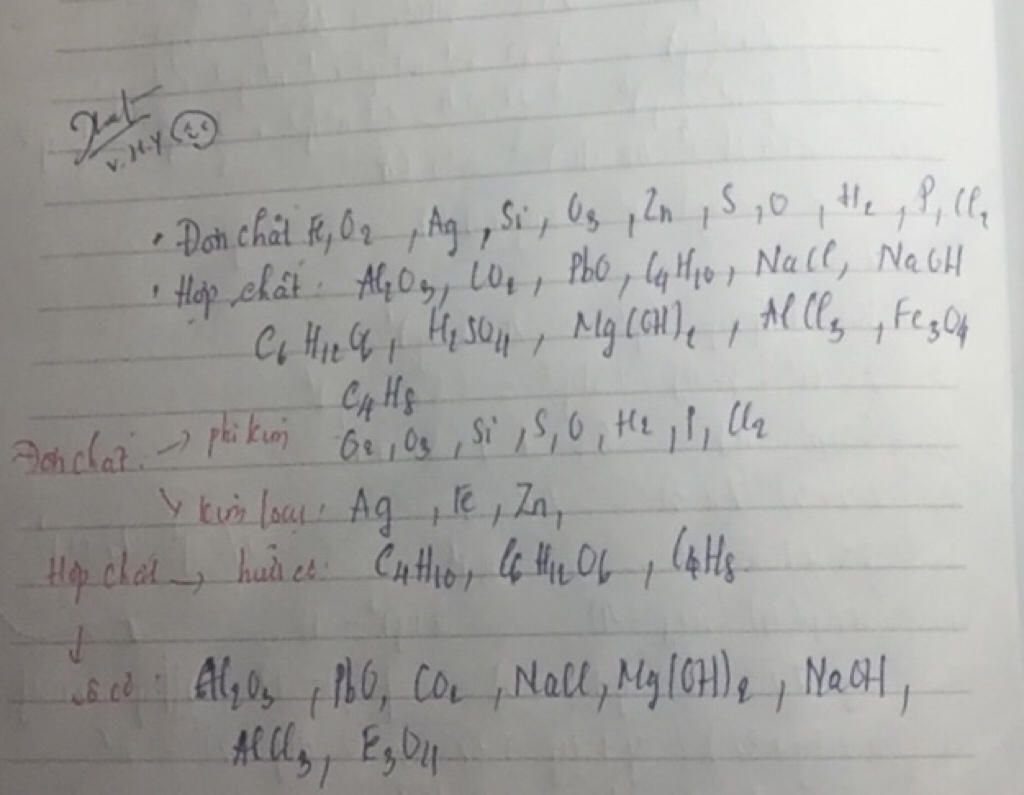 V.H.Y
• Đơn chất Fe, O₂, Ag, Si, O₃, Zn, S, O, H₂, P, Cl₂
• Hợp chất: Al₂O₃, CO₂, PbO, C₄H₁₀, NaCl, NaOH
C₆H₁₂O₆, H₂SO₄, Mg(OH)₂, AlCl₃, Fe₃O₄
C₄H₈
Đơn chất: → phi kim O₂, O₃, Si, S, O, H₂, P, Cl₂
↘ kim loại: Ag, Fe, Zn,
Hợp chất → hữu cơ: C₄H₁₀, C₆H₁₂O₆, C₄H₈
↓
vô cơ: Al₂O₃, PbO, CO₂, NaCl, Mg(OH)₂, NaOH,
AlCl₃, Fe₃O₄